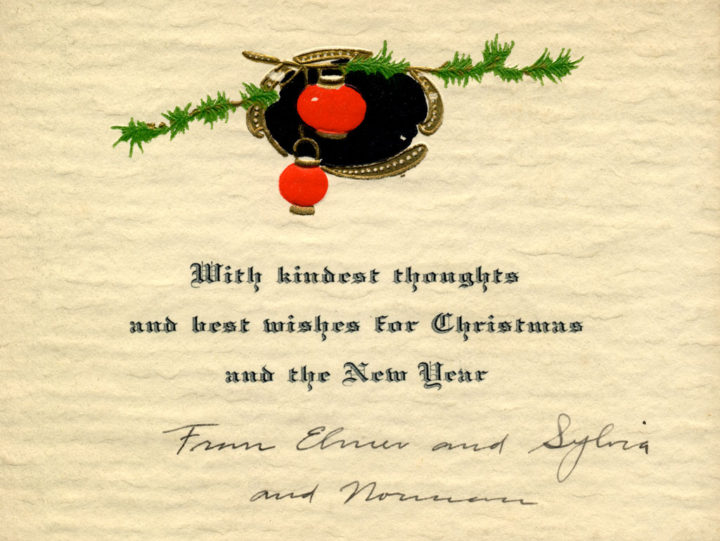 With kindest thoughts
and best wishes for Christmas
and the New Year
From Elmer and Sylvia
and Norman